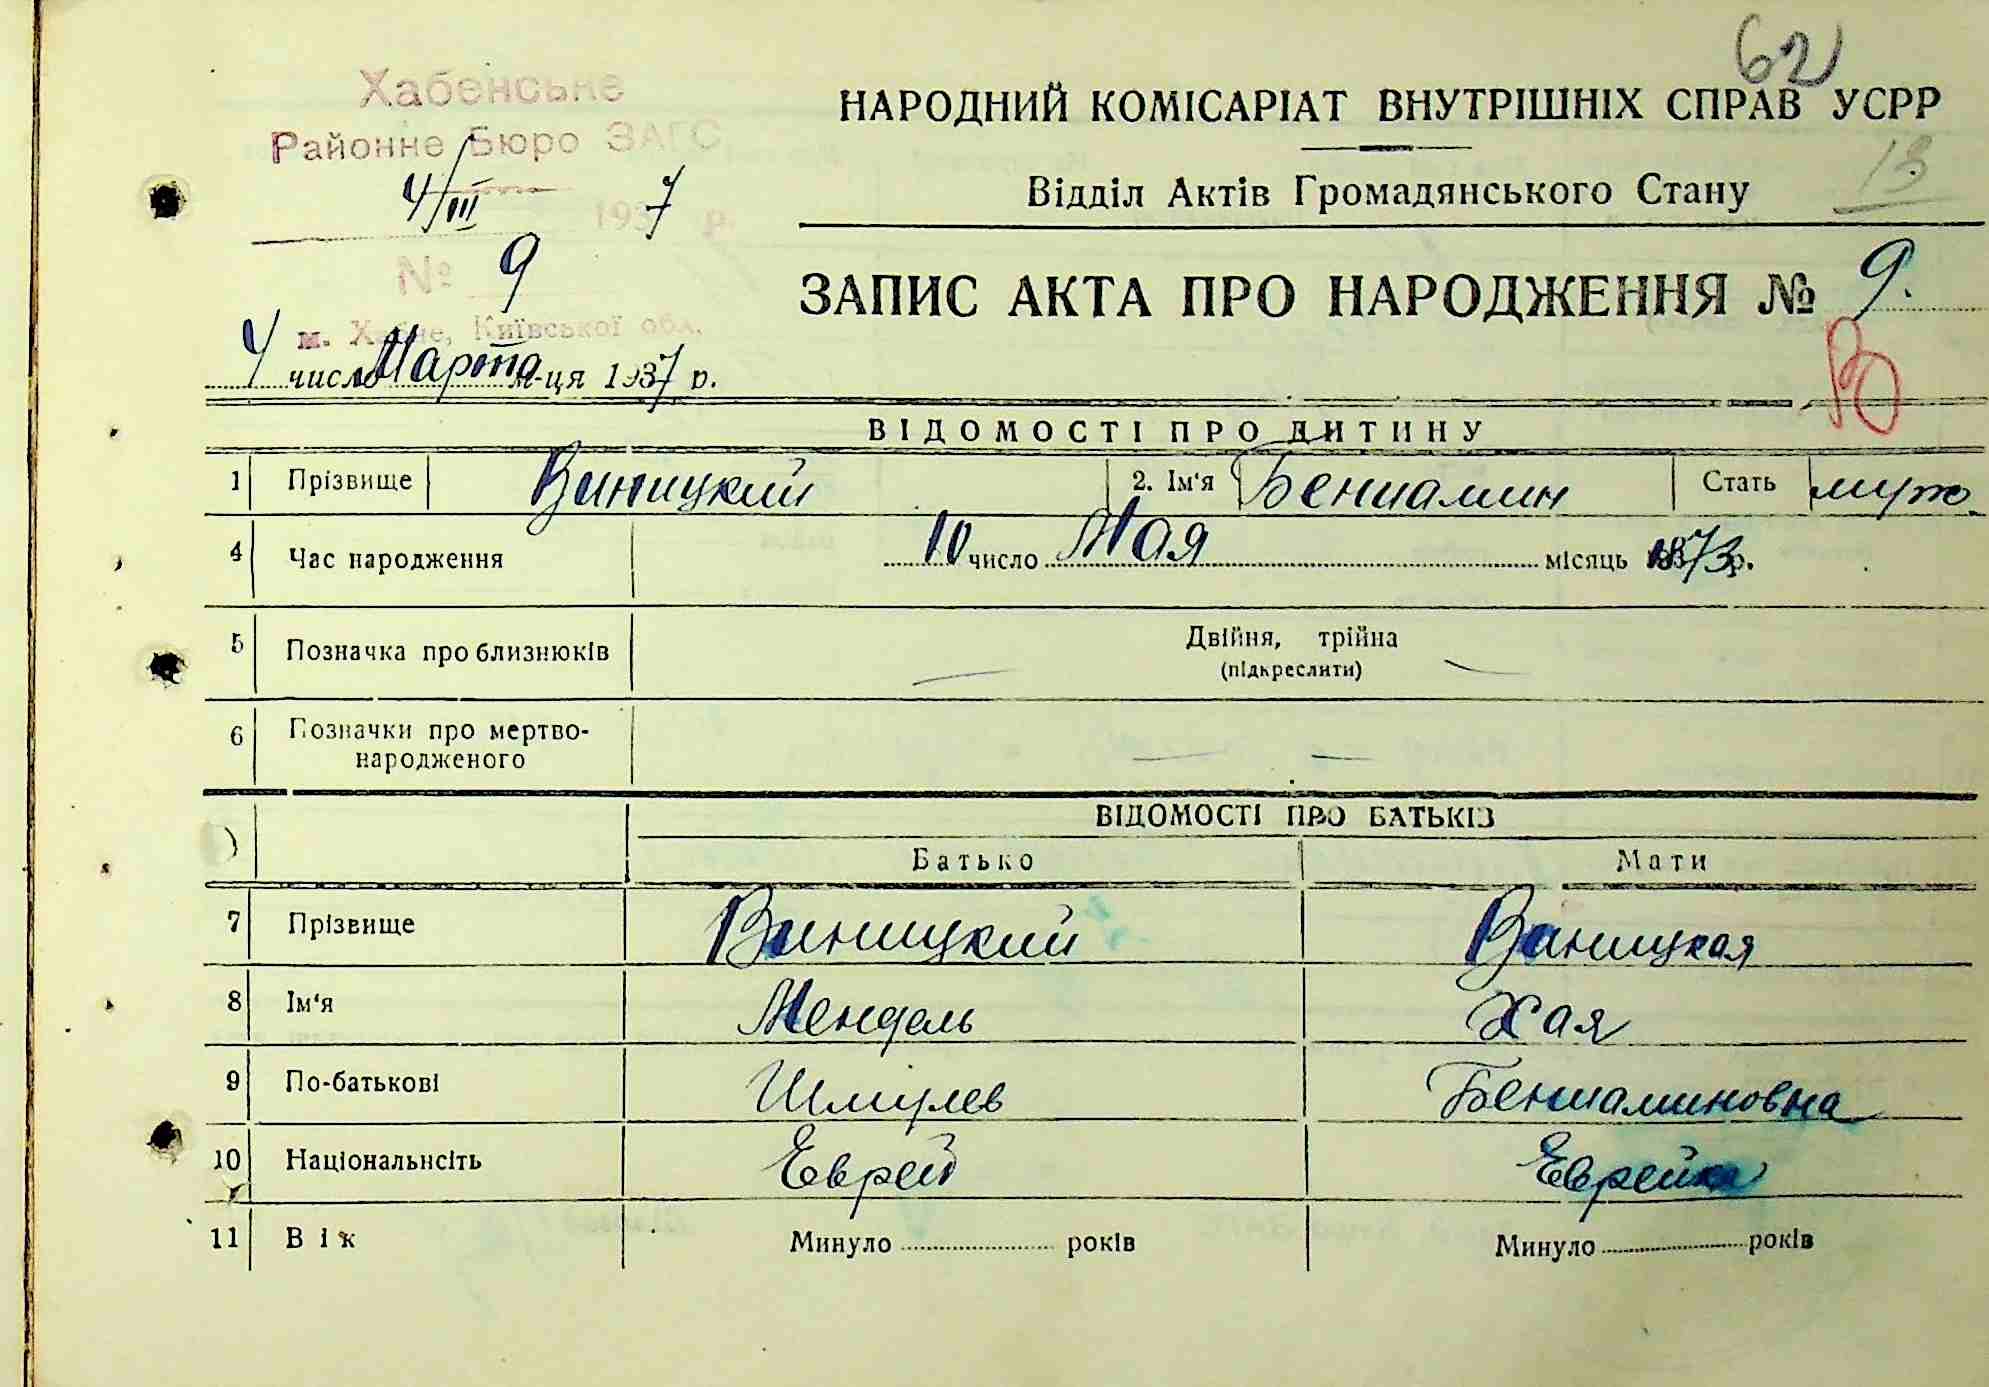 62
Хабенське
Районне Бюро ЗАГС
4/III 1937 р.
№ 9
м. Хабне, Київської обл.
4 число Марта м-ця 1937 р.
НАРОДНИЙ КОМІСАРІАТ ВНУТРІШНІХ СПРАВ УСРР
13
Відділ Актів Громадянського Стану
ЗАПИС АКТА ПРО НАРОДЖЕННЯ № 9.
ВІДОМОСТІ ПРО ДИТИНУ
1 Прізвище Виницкий 2. Ім'я Бениамин Стать муж.
4 Час народження 10 число Мая місяць 1873 р.
5 Позначка про близнюків Двійня, трійна
(підкреслити)
6 Позначки про мертво-
народженого
ВІДОМОСТІ ПРО БАТЬКІВ
Батько Мати
7 Прізвище Виницкий Виницкая
8 Ім'я Мендель Хая
9 По-батькові Шмулев Бениаминовна
10 Національнсіть Еврей Еврейка
11 Вік Минуло років Минуло років